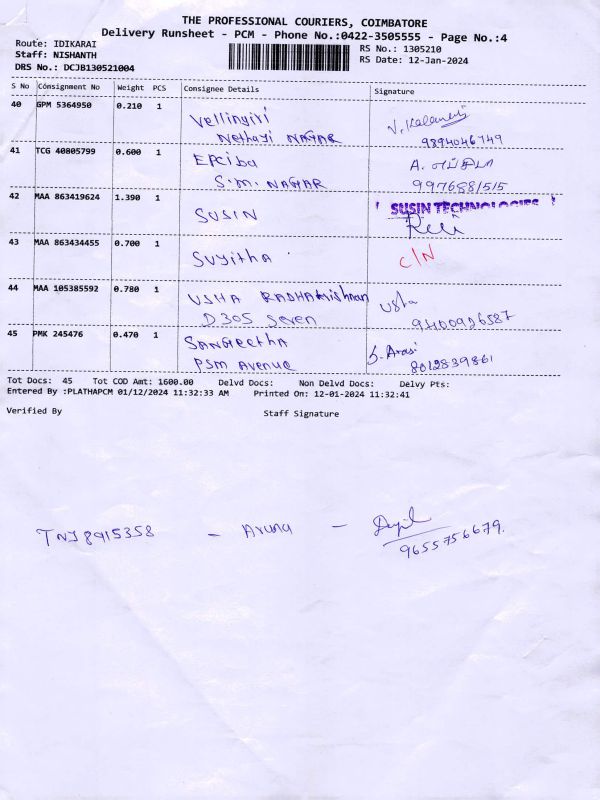 THE PROFESSIONAL COURIERS, COIMBATORE
Delivery Runsheet - PCM - Phone No.:0422-3505555 - Page No.:4
Route: IDIKARAI
RS No.: 1305210
Staff: NISHANTH
RS Date: 12-Jan-2024
DRS No.: DCJB130521004
S No Consignment No Weight PCS Consignee Details Signature
40 GPM 5364950 0.210 1 Vellingiri V. Kalamani
Nethaji NAGAR 9894046749
41 TCG 40805799 0.600 1 Epciba A. எப்சிபா
S.M. NAGAR 9976881515
42 MAA 863419624 1.390 1 SUSIN SUSIN TECHNOLOGIES
43 MAA 863434455 0.700 1 Suyitha C/N
44 MAA 105385592 0.780 1 USHA RADHAKrishnan Usha
D305 Seven 9400926587
45 PMK 245476 0.470 1 SANGeetha S. Arasi
PSM Avenue 8012839861
Tot Docs: 45 Tot COD Amt: 1600.00 Delvd Docs: Non Delvd Docs: Delvy Pts:
Entered By :PLATHAPCM 01/12/2024 11:32:33 AM Printed On: 12-01-2024 11:32:41
Verified By Staff Signature
TNJ8915358 - Aruna -
9655756679.